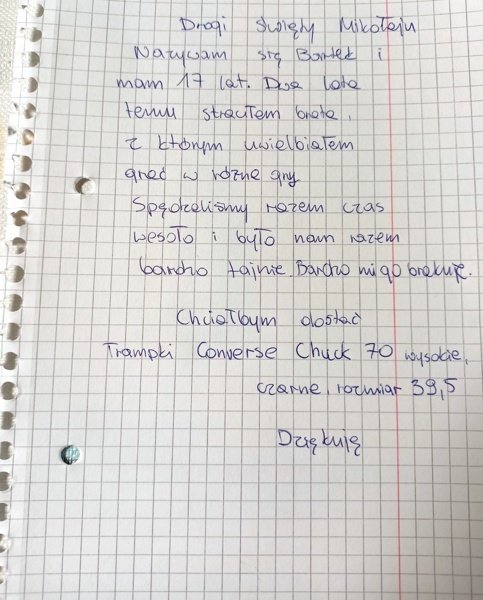 Drogi Święty Mikołaju
Nazywam się Bartek i
mam 17 lat. Dwa lata
temu straciłem brata,
z którym uwielbiałem
grać w różne gry
Spędzaliśmy razem czas
wesoło i było nam razem
bardzo fajnie. Bardzo mi go brakuje.
Chciałbym dostać
Trampki Converse Chuck 70 wysokie,
czarne, rozmiar 39,5
Dziękuję